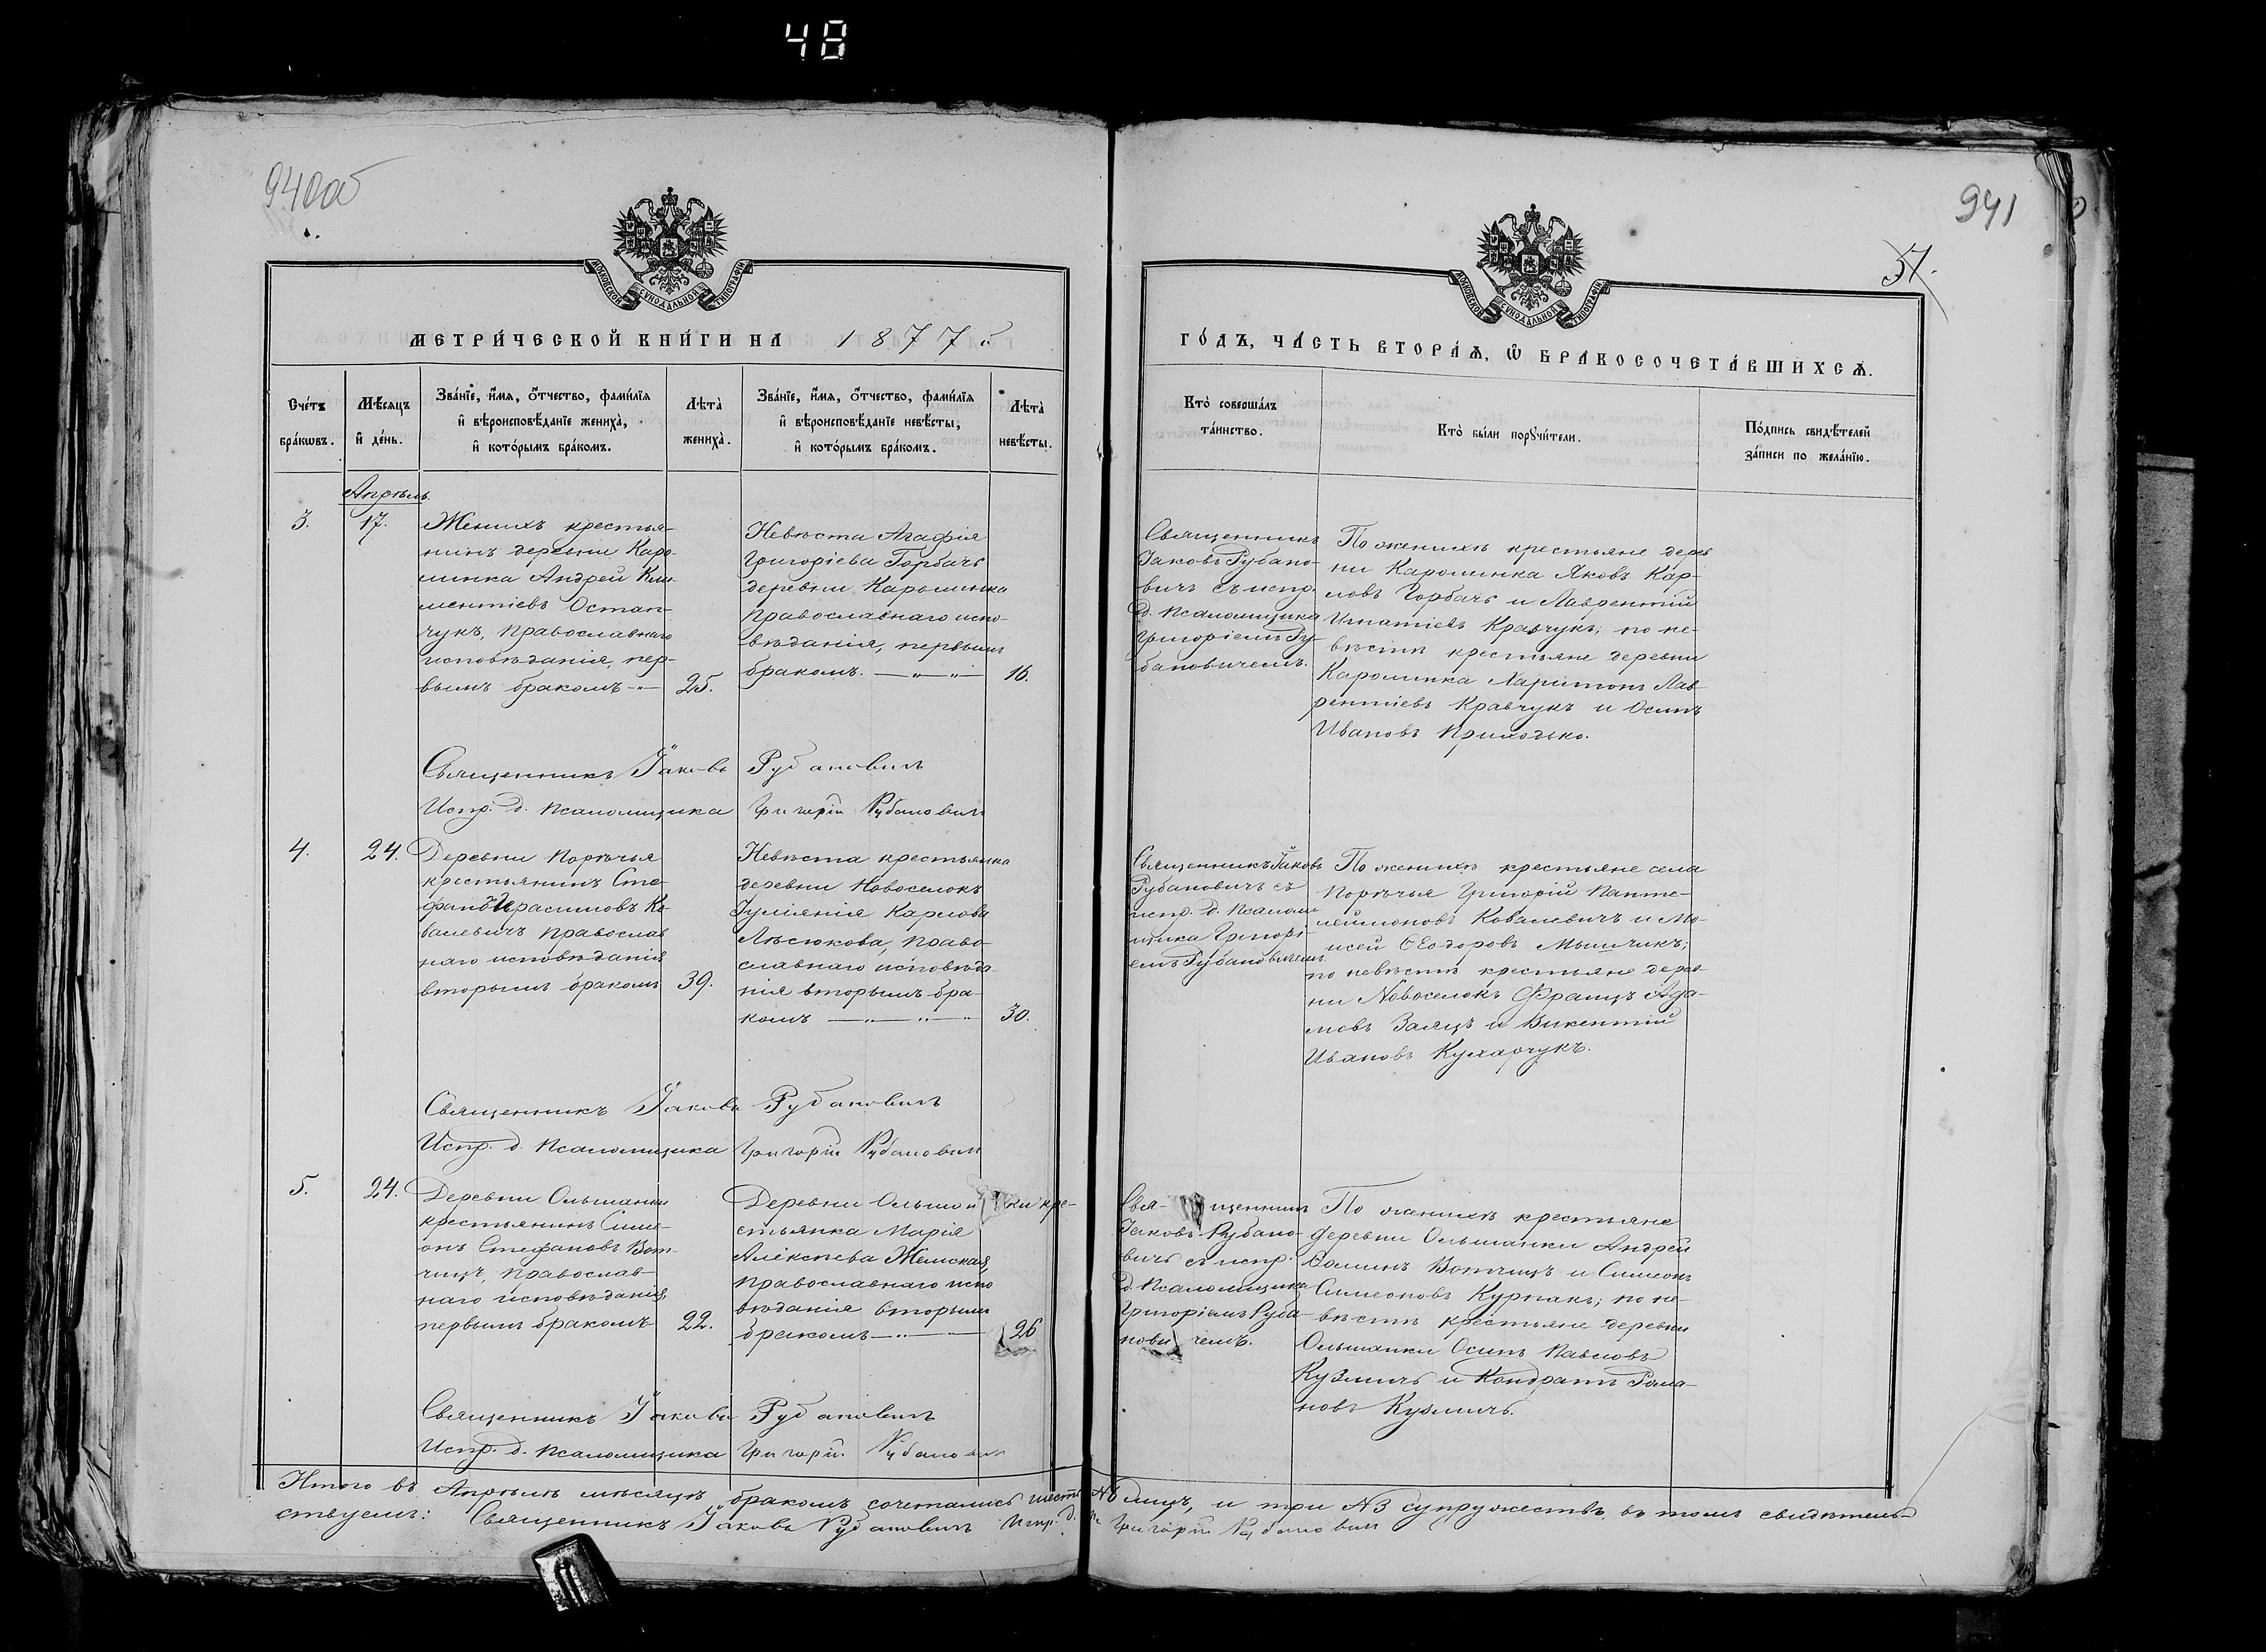 48
940об
941
37.
МОСКОВСКОЙ СѴНОДАЛЬНОЙ ТИПОГРАФІИ
МОСКОВСКОЙ СѴНОДАЛЬНОЙ ТИПОГРАФІИ
МЕТРИ́ЧЕСКОЙ КНИ́ГИ НА 1877й
ГО́ДЪ, ЧА́СТЬ ВТОРА́Ѧ, Ѽ БРАКОСОЧЕТА́ВШИХСѦ.
Сче́тъ
бра́кѡвъ.
Мѣ́сяцъ
и҆ де́нь.
Зва́нїе, и҆́мѧ, о҆́тчество, фами́лїѧ
и҆ вѣроисповѣ́данїе жениха̀,
и҆ кото́рымъ бра́комъ.
Лѣта̀
жениха̀.
Зва́нїе, и҆́мѧ, о҆́тчество, фами́лїѧ
и҆ вѣроисповѣ́данїе невѣ́сты,
и҆ кото́рымъ бра́комъ.
Лѣта̀
невѣ́сты.
Кто̀ соверша́лъ
та́инство.
Кто̀ бы́ли порꙋчи́тели.
По́дпись свидѣ́телей
за́писи по жела́нїю.
Апрѣль.
3.
17.
Женихъ крестья-
нинъ деревни Каро-
линка Андрей Кли-
ментіевъ Остап-
чукъ, православнаго
исповѣданія, пер-
вымъ бракомъ
25.
Невѣста Агафія
Григоріева Горбачъ
деревни Каролинка
православнаго испо-
вѣданія, первымъ
бракомъ.
16.
Священникъ
Іаковъ Рубано-
вичъ съ испр.
д. псаломщика
Григоріемъ Ру-
бановичемъ.
По женихѣ крестьяне дерев
ни Каролинка Яковъ Кар-
повъ Горбачъ и Лаврентій
Игнатіевъ Кравчукъ; по не-
вѣстѣ крестьяне деревни
Каролинка Харитонъ Лав-
рентіевъ Кравчукъ и Осипъ
Ивановъ Приходько.
Священникъ Іаковъ Рубановичъ
Испр. д. псаломщика Григорій Рубановичъ
4.
24.
Деревни Порѣчья
крестьянинъ Сте-
фанъ Герасимовъ Ко-
валевичъ православ
наго исповѣданія
вторымъ бракомъ
39.
Невѣста крестьянка
деревни Новоселокъ
Іуліянія Карлова
Лѣсюкова, право-
славнаго исповѣда-
нія вторымъ бра-
комъ
30.
Священникъ Іаковъ
Рубановичъ съ
испр. д. псалом-
щика Григорі-
емъ Рубановичемъ
По женихѣ крестьяне села
Порѣчья Григорій Панте-
леймоновъ Ковалевичъ и Мо-
исей Ѳеодоровъ Мышчикъ;
по невѣстѣ крестьяне дерев-
ни Новоселокъ Францъ Ада-
мовъ Заяцъ и Викентій
Ивановъ Кухарчукъ.
Священникъ Іаковъ Рубановичъ
Испр. д. псаломщика Григорій Рубановичъ
5.
24.
Деревни Ольшанки
крестьянинъ Симе-
онъ Стефановъ Вот-
чицъ, православ-
наго исповѣданія,
первымъ бракомъ
22.
Деревни Ольшанки кре-
стьянка Марія
Алексѣева Жемская,
православнаго испо
вѣданія вторымъ
бракомъ
26
Священникъ
Іаковъ Рубано-
вичъ съ испр.
д. псаломщика
Григоріемъ Руба-
новичемъ.
По женихѣ крестьяне
деревни Ольшанки Андрей
Ѳоминъ Вотчицъ и Симеонъ
Симеоновъ Курпакъ; по не-
вѣстѣ крестьяне деревни
Ольшанки Осипъ Павловъ
Кузмичъ и Кондратъ Рома-
новъ Кузмичъ.
Священникъ Іаковъ Рубановичъ
Испр. д. псаломщика Григорій Рубановичъ
Итого въ Апрѣлѣ мѣсяцѣ бракомъ сочетались шесть №6 лицъ, и три №3 супружествъ, въ томъ свидѣтель-
ствуемъ: Священникъ Іаковъ Рубановичъ Испр. д. п. Григорій Рубановичъ